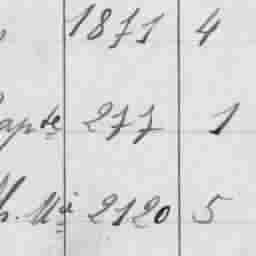 1871 4
apte 277 1
h. Ma 2120 5